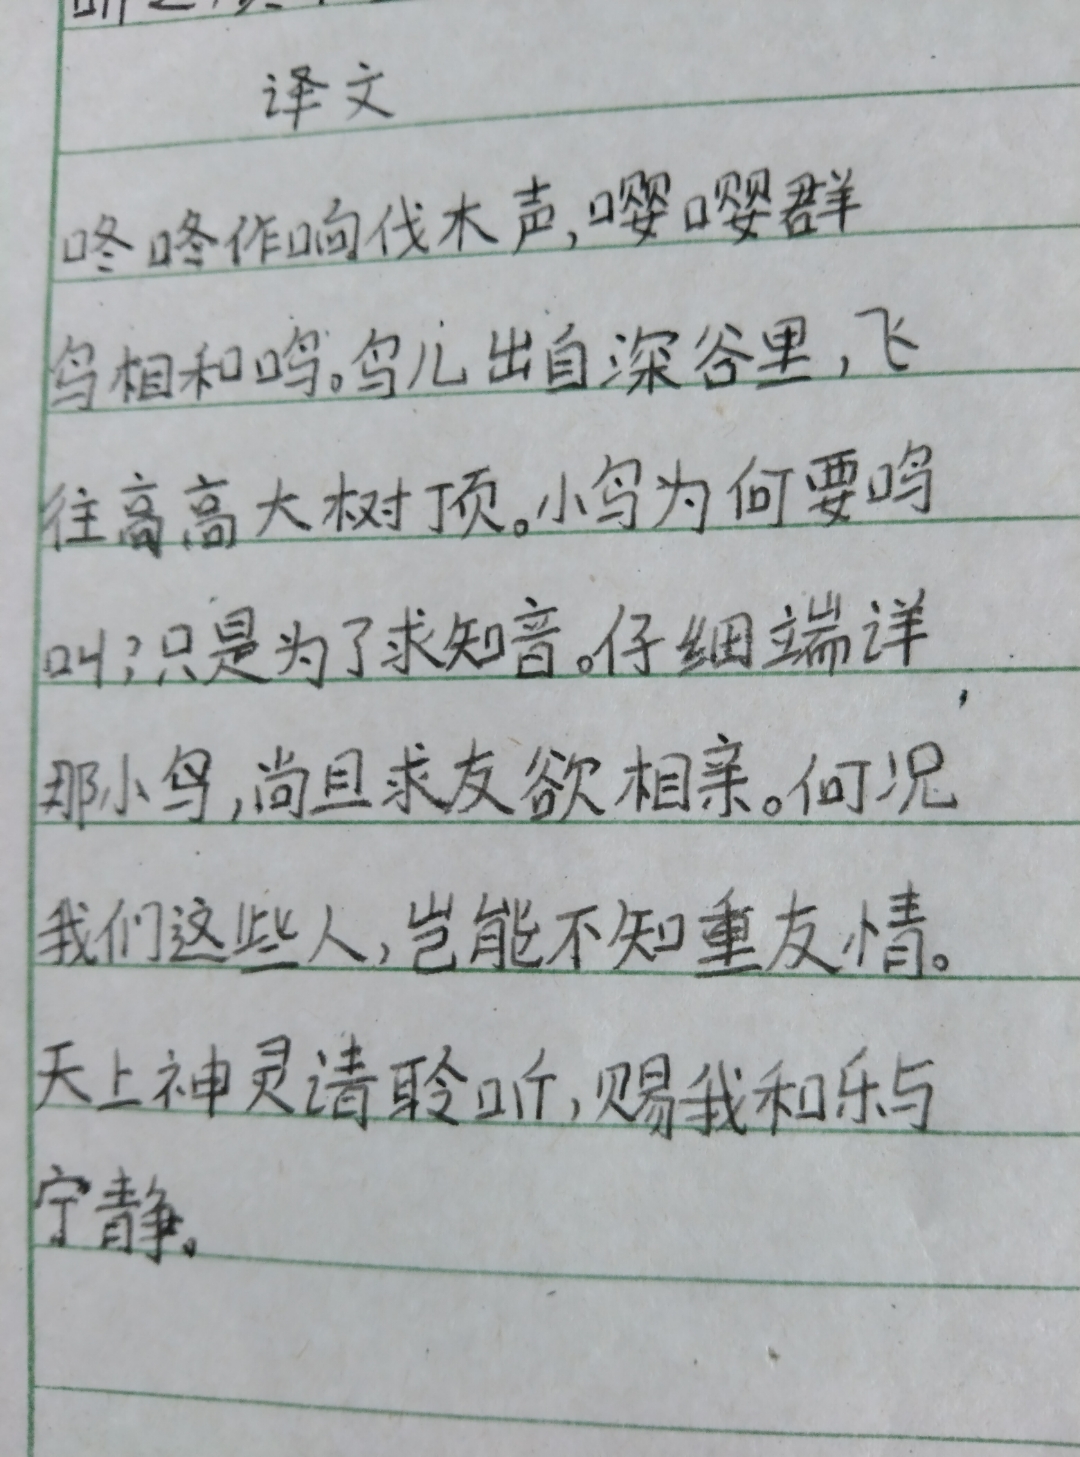 译文
咚咚作响伐木声,嘤嘤群
鸟相和鸣。鸟儿出自深谷里,飞
往高高大树顶。小鸟为何要鸣
叫?只是为了求知音。仔细端详
那小鸟,尚且求友欲相亲。何况
我们这些人,岂能不知重友情。
天上神灵请聆听,赐我和乐与
宁静。